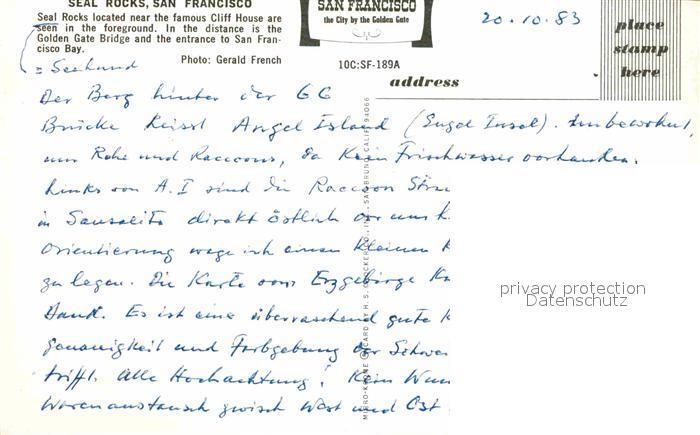 SEAL ROCKS, SAN FRANCISCO
Seal Rocks located near the famous Cliff House are
seen in the foreground. In the distance is the
Golden Gate Bridge and the entrance to San Fran-
cisco Bay.
Photo: Gerald French
= Seehund
SAN FRANCISCO
the City by the Golden Gate
10C:SF-189A
20.10.83
place
stamp
here
address
Der Berg hinter der GG
Brücke heisst Angel Island (Engel Insel). Unbewohnt,
nur Rehe und Raccoons, da kein Frischwasser vorhanden.
Links von A.I sind die Raccoon Strae
in Sausalito direkt östlich vor uns
Orientierung wage ich einen kleinen
zu legen. Die Karte vom Erzgebirge
Dank. Es ist eine überraschend gute
genauigkeit und Farbgebung der
trifft. Alle Hochachtung! Kein
Warenaustausch zwisch West und Ost
privacy protection
Datenschutz